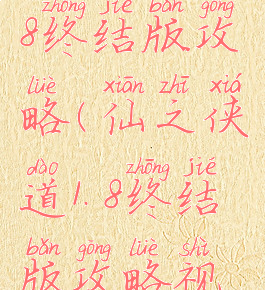 zhōng jié bǎn gōng
8终结版攻
lüè xiān zhī xiá
略(仙之侠
dào zhōng jié
道1.8终结
bǎn gōng lüè shì
版攻略视